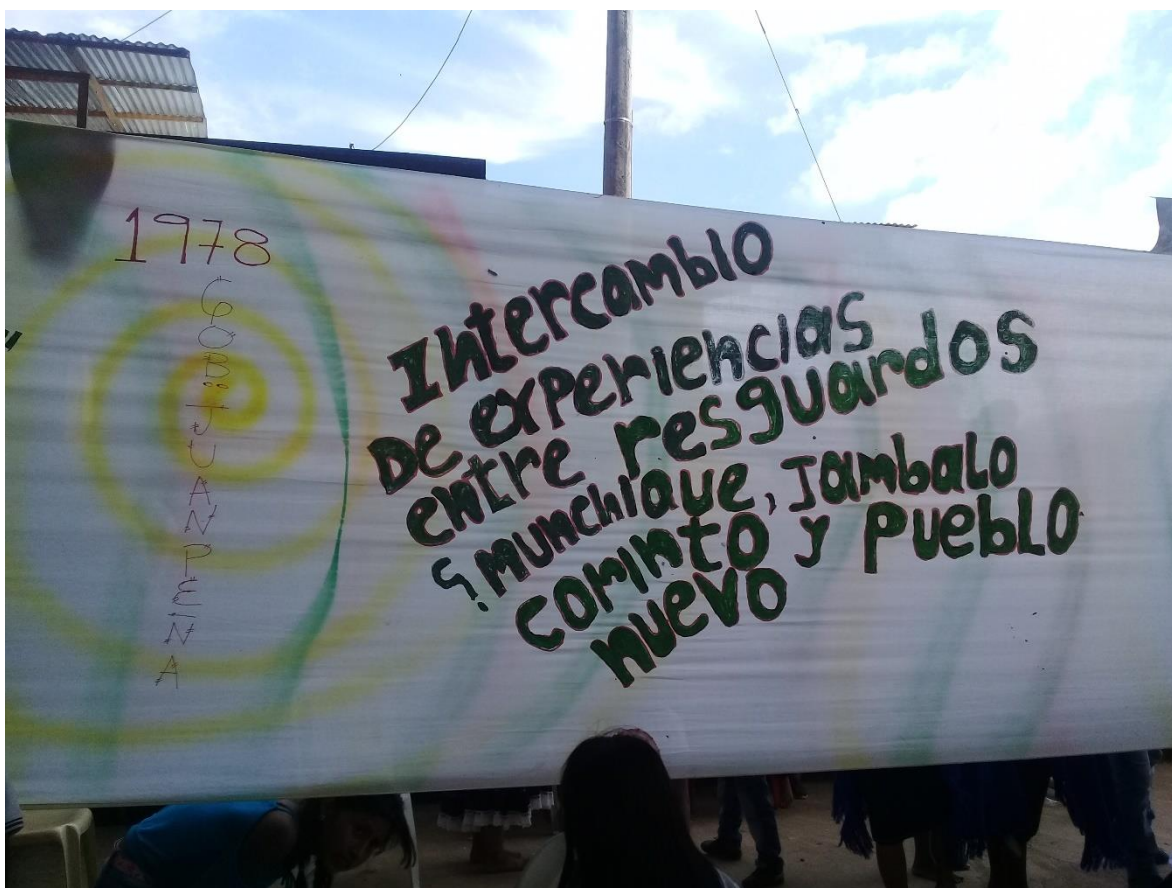 1978
GOB: JUAN PEÑA
Intercambio
De experiencias
entre resguardos
¿munchique, Jambalo
corinto y Pueblo
nuevo